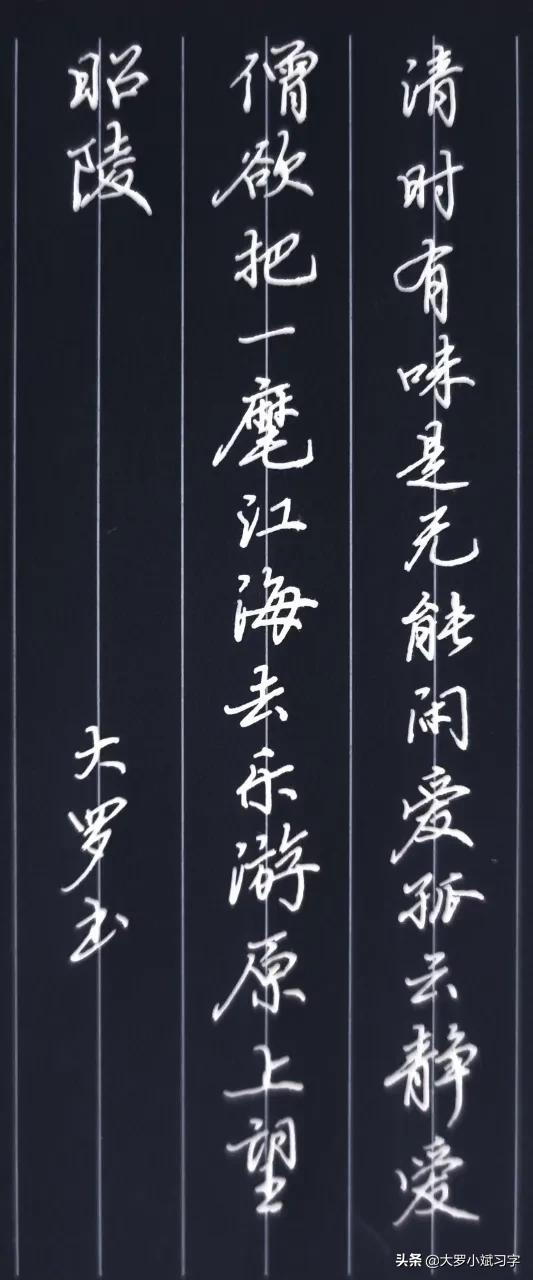 清时有味是无能闲爱孤云静爱
僧欲把一麾江海去乐游原上望
昭陵
大罗书
头条@大罗小斌习字